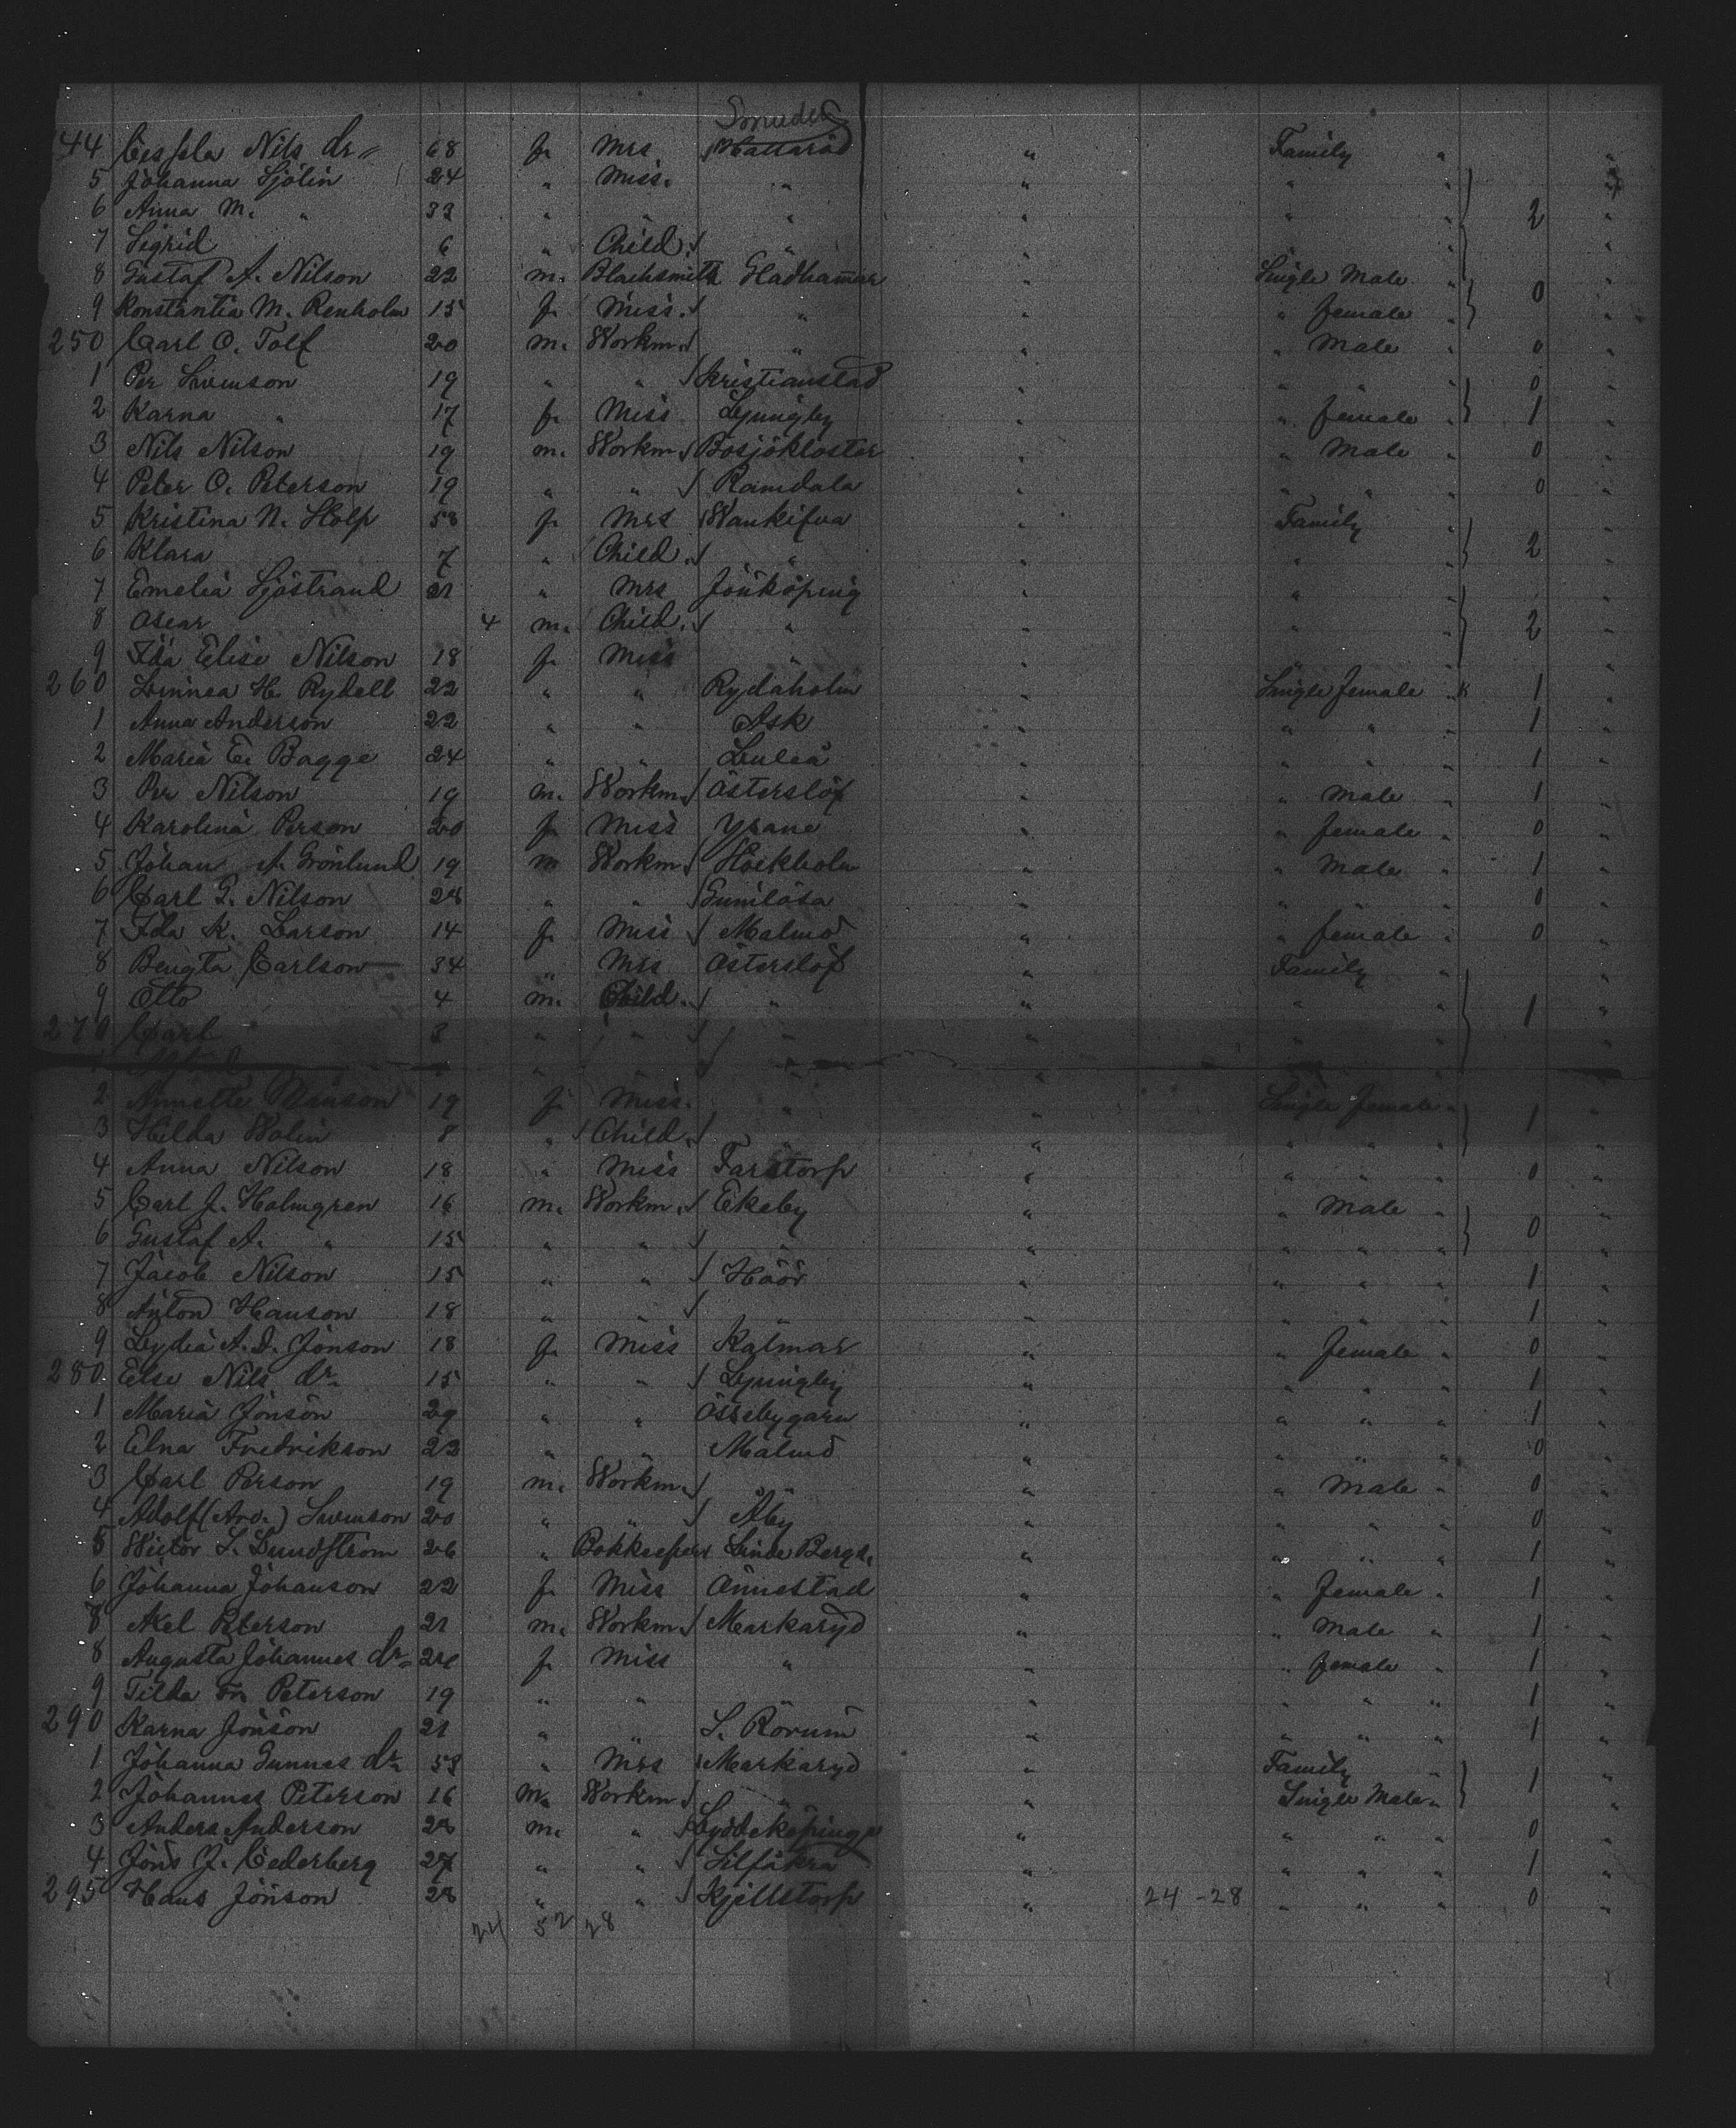 Smedeb
44 Cessla Nils dr. 68 f. Mrs Mattaröd " Family " "
5 Johanna Sjölin 24 " Miss. " " " " "
6 Anna M. " 33 " " " " " " 2 "
7 Sigrid 6 " Child. " " " " "
8 Gustaf A. Nilson 22 m. Blacksmith Gladhammar " Single Male " "
9 Konstantia M. Renholm 15 f. Miss. " " " female " 0 "
250 Carl O. Tolf 20 m. Workm. " " " Male " 0 "
1 Per Swenson 19 " " Kristianstad " " " " 0 "
2 Karna " 17 f. Miss Ljungby " " female " 1 "
3 Nils Nilson 19 m. Workm. Bosjökloster " " Male " 0 "
4 Peter O. Peterson 19 " " Ramdala " " " " 0 "
5 Kristina N. Holp 58 f. Mrs Wankifva " Family "
6 Klara 7 " Child. " " " " 2 "
7 Emelia Sjöstrand 21 " Mrs Jönköping " " " "
8 Oscar 4 m. Child. " " " " 2 "
9 Ida Elise Nilson 18 f. Miss " " " " "
260 Linnea H. Rydell 22 " " Rydaholm " Single female " 1 "
1 Anna Anderson 22 " " Ask " " " " 1 "
2 Maria E. Bagge 24 " " Luleå " " " " 1 "
3 Per Nilson 19 m. Workm. Österslöf " " Male " 1 "
4 Karolina Person 20 f. Miss Ysane " " female " 0 "
5 Johan A. Grönlund 19 m Workm. Stockholm " " Male " 1 "
6 Carl G. Nilson 28 " " Gumlösa " " " " 0 "
7 Ida K. Larson 14 f. Miss Malmö " " female " 0 "
8 Bengta Carlson 34 " Mrs Österslöf " Family " "
9 Otto 4 m. Child. " " " " 1 "
270 Carl 3 " " " " " " "
2 Annette Månson 19 f Miss. " " Single female " 1 "
3 Hilda Wolin 8 " Child. " " " " " "
4 Anna Nilson 18 " Miss Farstorp " " " " 0 "
5 Carl J. Holmgren 16 m. Workm. Ekeby " " Male " "
6 Gustaf A. " 15 " " " " " " " 0 "
7 Jacob Nilson 15 " " Höör " " " " 1 "
8 Anton Hanson 18 " " " " " " 1 "
9 Lydia A. D. Jönson 18 f. Miss Kalmar " " female " 0 "
280 Else Nils dr. 15 " " Ljungby " " " " 1 "
1 Maria Jönson 29 " " Össebygarn " " " " 1 "
2 Elna Fredrikson 23 " " Malmö " " " " 0 "
3 Carl Person 19 m. Workm. " " Male " 0 "
4 Adolf (Arv.) Swenson 20 " " Åby " " " " 0 "
5 Wictor L. Lundström 26 " Bokkeeper Linde Bergsl. " " " " 1 "
6 Johanna Johanson 22 f. Miss Önnestad " " female " 1 "
8 Axel Peterson 21 m. Workm. Markaryd " " Male " 1 "
8 Augusta Johannes dr. f. Miss " " " female " 1 "
9 Tilda Peterson 19 " " " " " " 1 "
290 Karna Jönson 21 " " S. Rörum " " " " 1 "
1 Johanna Gunnes dr. 53 " Mrs Markaryd " Family " "
2 Johannes Peterson 16 m. Workm. " " Single Male " 1 "
3 Anders Anderson 28 m. " Lyddeköpinge " " " " 0 "
4 Jöns J. Cederberg 27 " " Silfåkra " " " " 1 "
295 Hans Jönson 28 " " Kjellstorp " 24 - 28 " " " 0 "
24 52 28